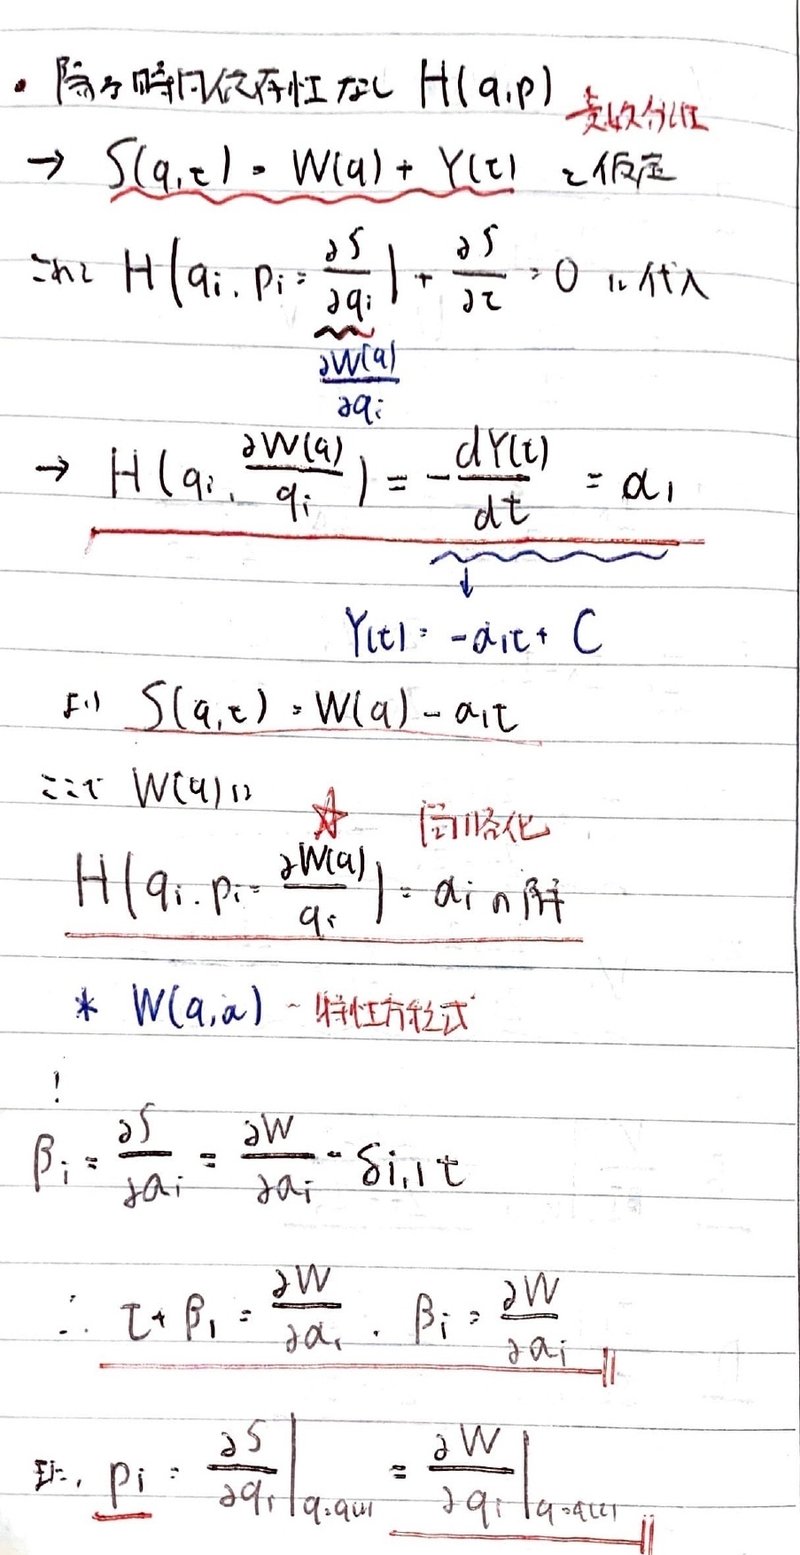 ・陽な時間依存性なし H(q,p) 変数分離
→ S(q,t) = W(q) + Y(t) と仮定
これを H(qi, pi = ∂S/∂qi) + ∂S/∂t = 0 に代入
∂W(q)/∂qi
→ H(qi, ∂W(q)/qi) = -dY(t)/dt = α1
↓
Y(t) = -α1t + C
より S(q,t) = W(q) - α1t
ここで W(q)は
☆ 簡略化
H(qi, pi = ∂W(q)/qi) = αi の解
* W(q,α) - 特性方程式
!
βi = ∂S/∂αi = ∂W/∂αi - δi,1 t
∴ t + β1 = ∂W/∂α1 , βi = ∂W/∂αi
また, pi = ∂S/∂qi|q=q(t) = ∂W/∂qi|q=q(t)